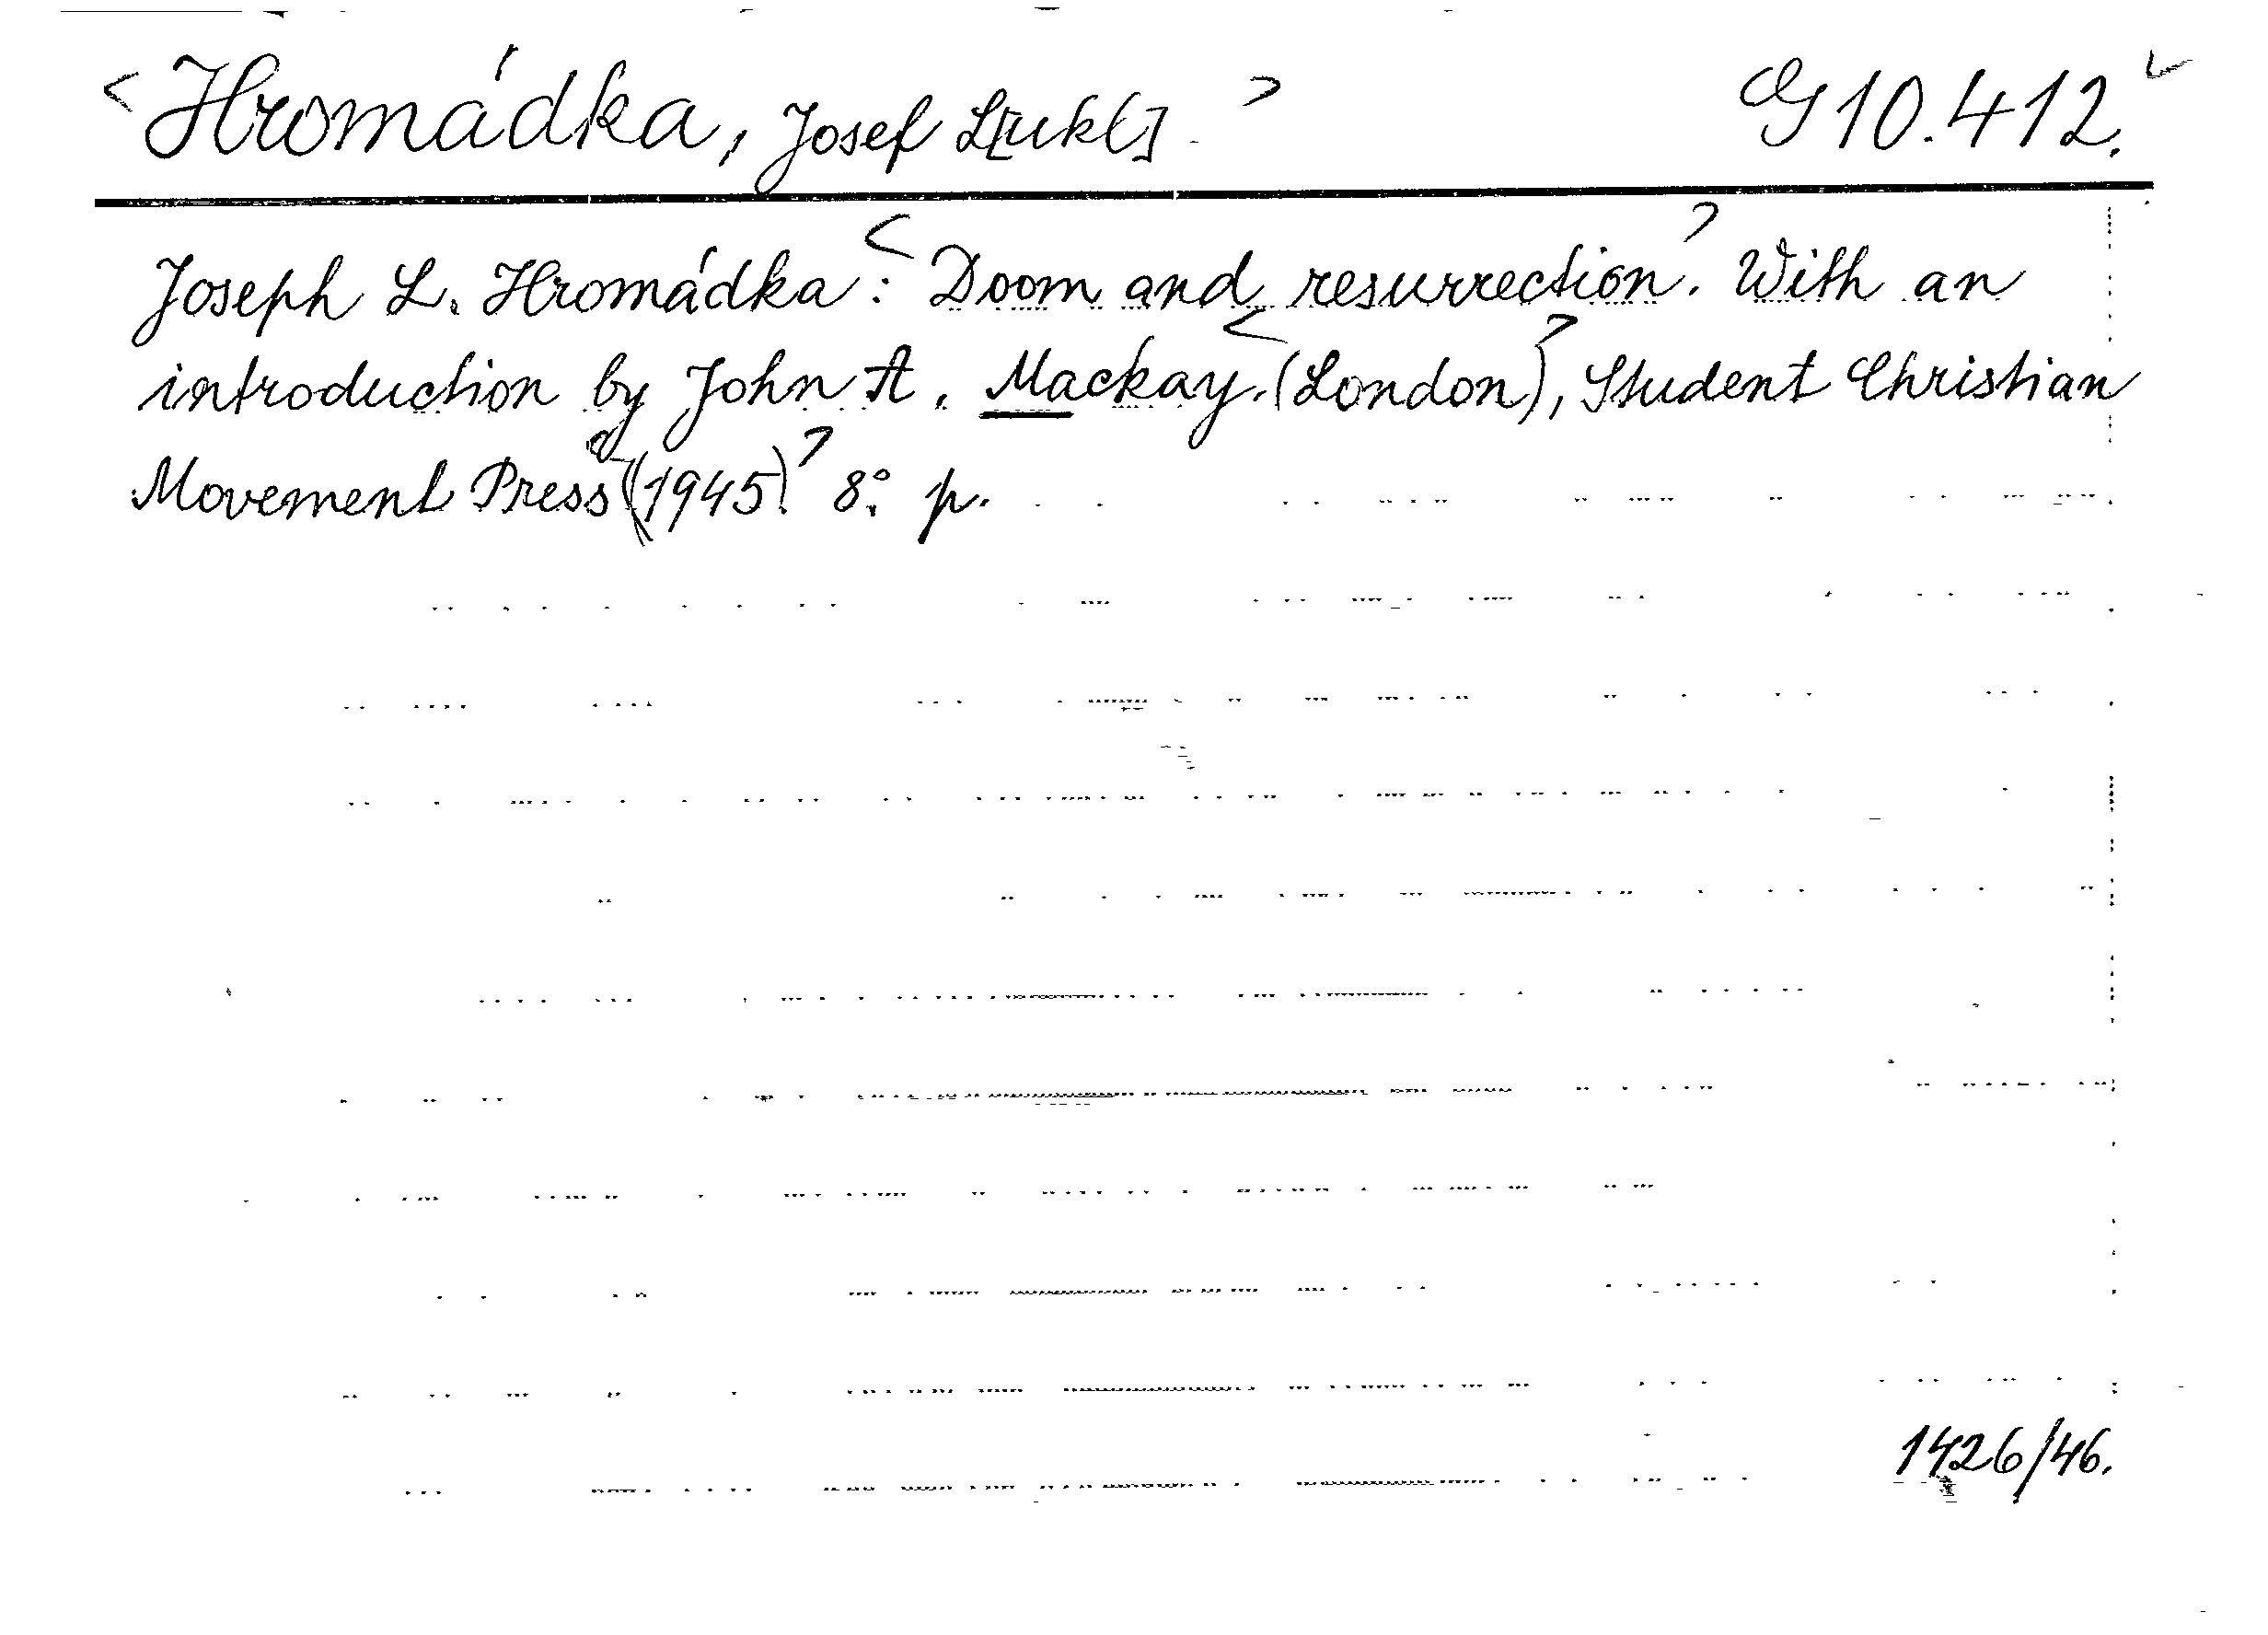 <Hromádka, Josef L[ukl]> G 10.412.
Joseph L. Hromádka: <Doom and resurrection>. With an
introduction by John A. Mackay. <(London)>, Student Christian
Movement Press <(1945)>. 8°. p.
1426/46.